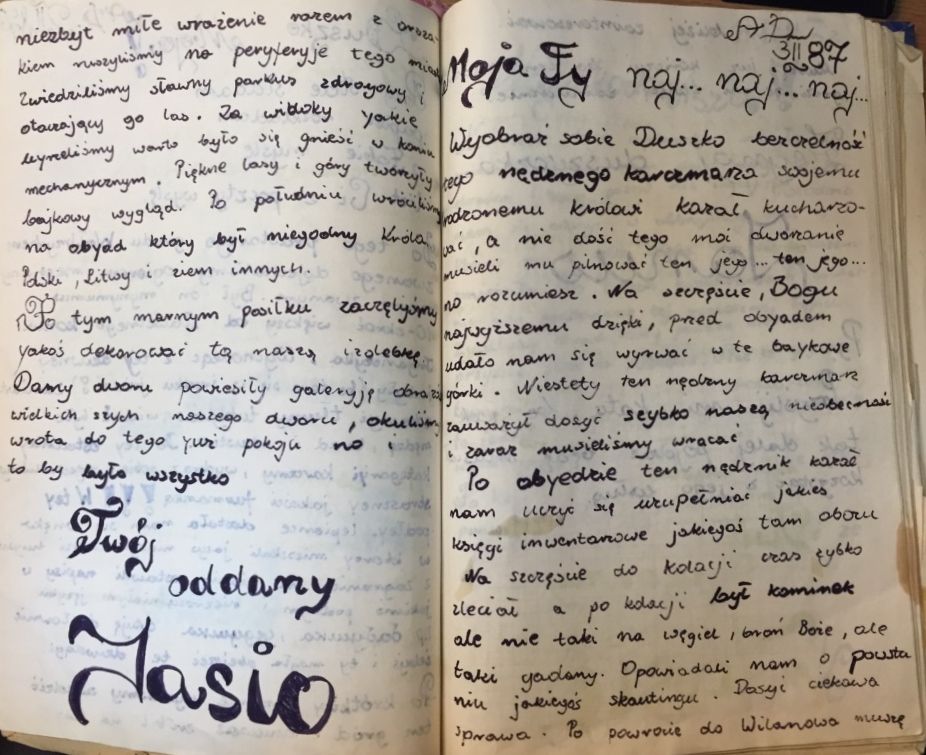 niezbyt miłe wrażenie razem z orsza-
kiem ruszyliśmy na peryferyje tego miasta
Zwiedziliśmy sławny parkus zdroyowy i
otaczający go las. Za widoky yakie
uyrzeliśmy warto było się gnieść w koniu
mechanycznym. Piękne lasy i góry tworzyły
baykowy wygląd. Po południu wróciliśmy
na obyad który był niegodny Króla
Polski, Litwy i ziem innych.
Po tym marnym posiłku zaczęlyśmy
yakoś dekorować tą naszą izdebkę.
Damy dworu powiesiły galeryję obrazów
wielkich szych naszego dworu, okuliśmy
wrota do tego yuż pokoju no i
to by było wszystko
Twój
oddany
Jasio
AD
3 II 87
Moja Ty naj... naj... naj...
Wyobraź sobie Duszko bezczelność
tego nędznego karczmarza swojemu
rodzonemu królowi kazał kucharzo-
wać, a nie dość tego moi dworzanie
musieli mu pilnować ten jego... ten jego...
no rozumiesz. Na szczęście, Bogu
najwyższemu dzięki, przed obyadem
udało nam się wyrwać w te baykowe
górki. Niestety ten nędzny karczmarz
zauważył dosyć szybko naszą nieobecność
i zaraz musieliśmy wracać
Po obyedzie ten nędznik kazał
nam uczyć się uzupełniać jakieś
księgi inwentarzowe jakiegoś tam obozu
Na szczęście do kolacji czas szybko
zleciał a po kolacji był kominek
ale nie taki na węgiel, broń Boże, ale
taki gadany. Opowiadali nam o powsta
niu jakiegoś skautingu. Dosyć ciekawa
sprawa. Po powrocie do Wilanowa muszę